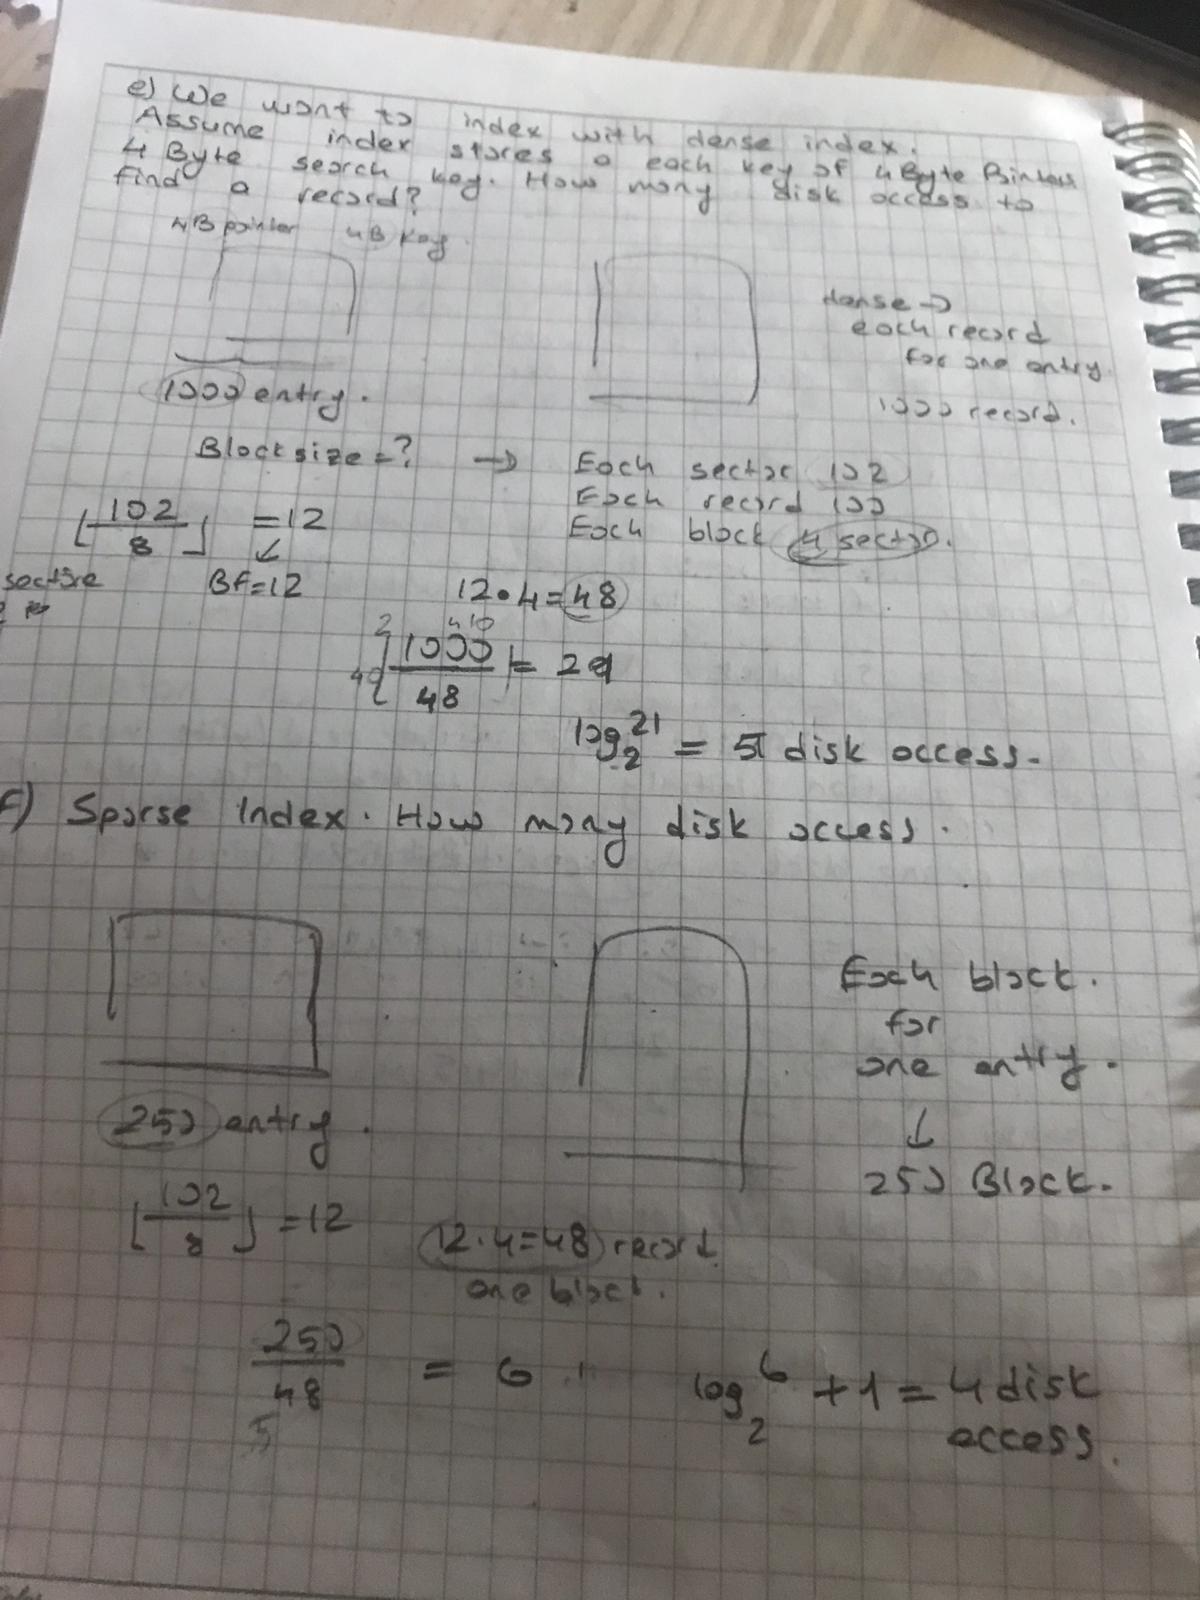 e) We want to index with dense index.
Assume index stores a each key of 4 Byte Pinters
4 Byte search key. How many disk access to
find a record?
4B pointer 4B key.
dense →
each record
for one entry
1000 entry.
1000 record.
Block size = ? → Each sector 102
Each record 100
Each block 4 sector.
⌊102/8⌋ = 12
↓
BF=12
12 • 4 = 48
⌈1000/48⌉ = 21
log₂ 21 = 5 disk access.
f) Sparse Index. How many disk access.
Each block.
for
one entry.
↓
250 Block.
250 entry.
⌊102/8⌋ = 12
12 • 4 = 48 record
one block.
250/48 = 6
log₂ 6 + 1 = 4 disk
access.